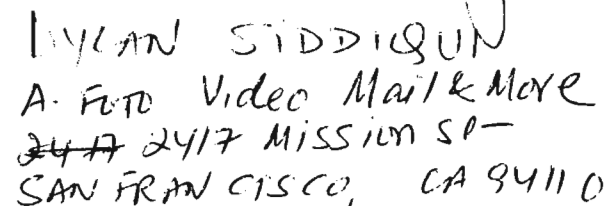 SIDDIQUN
A. FOTO Video Mail & More
2417 2417 Mission SP-
SAN FRANCISCO, CA 94110